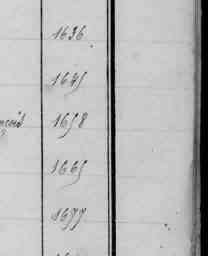 1636
1645
1658
1665
1677